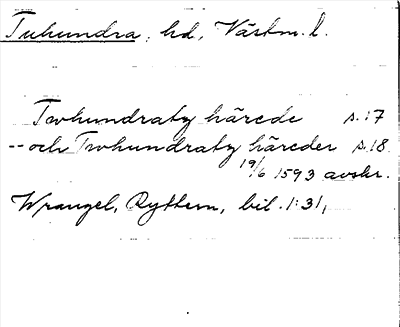 Tuhundra, hd, Västm. l.
Twhundraty härede s. 17
-- och Twhundraty häreder s. 18.
19/6 1593 avskr.
Wrangel, Ryttern, bil. 1:31,